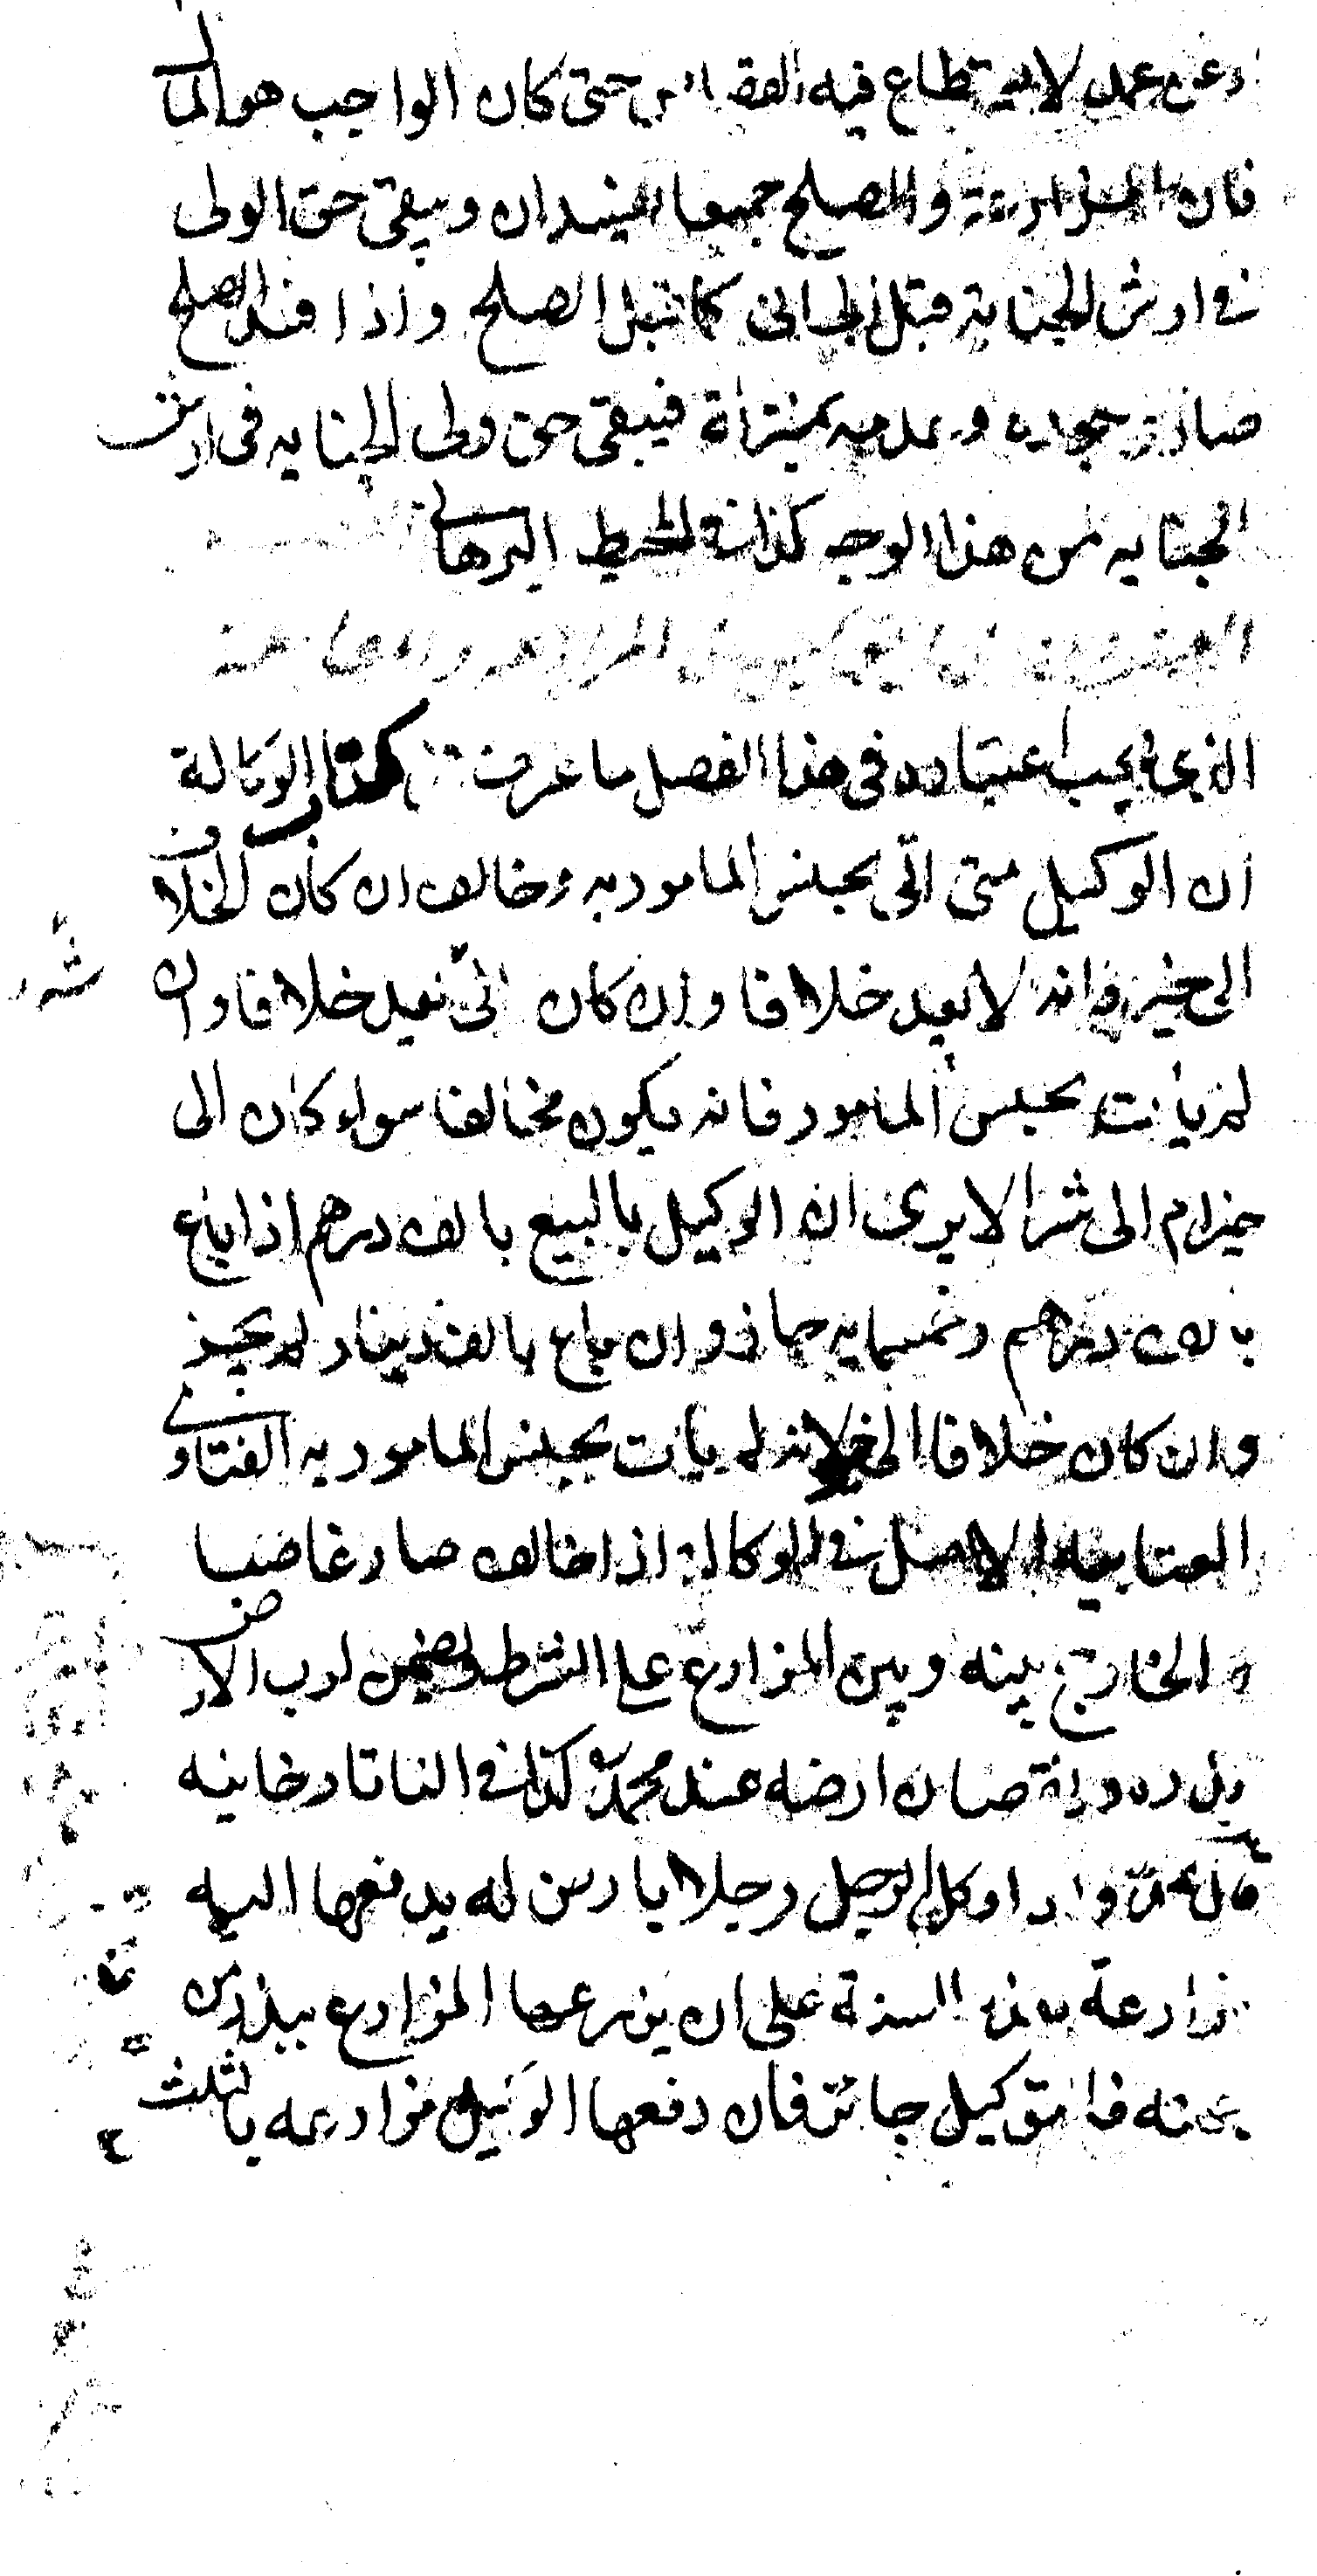 عن عمد لا يستطاع فيه القصاص حتى كان الواجب هو المال
فان المزارعة والصلح جميعا يفسدان ويبقى حق الولى
فى ارش الجناية قبل الجانى كما قبل الصلح واذا فسد الصلح
صار وجوده وعدمه بمنزلة فيبقى حق ولى الجنايه فى ارش
الجنايه من هذا الوجه كذا فى المحيط البرهانى
الذى يجب اعتباره فى هذا الفصل ما عرف كتاب الوكالة
ان الوكيل متى اتى بجنس المامور به وخالف ان كان الخلاف
الى خير فانه لا يعد خلافا وان كان الى يعد خلافا وان
شر
لم يات بجنس المامور فانه يكون مخالفا سواء كان الى
خير ام الى شر الا يرى ان الوكيل بالبيع بالف درهم اذا باع
بالف درهم وخمسمايه جاز وان باع بالف دينار لم يجز
وان كان خلافا الى خير لانه لم يات بجنس المامور به الفتاوى
العتابيه الاصل فى الوكالة اذا خالف صار غاصبا
والخارج بينه وبين المزارع على الشرط ويضمن لرب الارض
بذره ونقصان ارضه عند محمد كذا فى التاتارخانيه
قال محمد واذا وكل الرجل رجلا بارض له يدفعها اليه
مزارعة هذه السنة على ان يزرعها المزارع ببذر من
عنده فالتوكيل جائز فان دفعها الوكيل مزارعه بالثلث